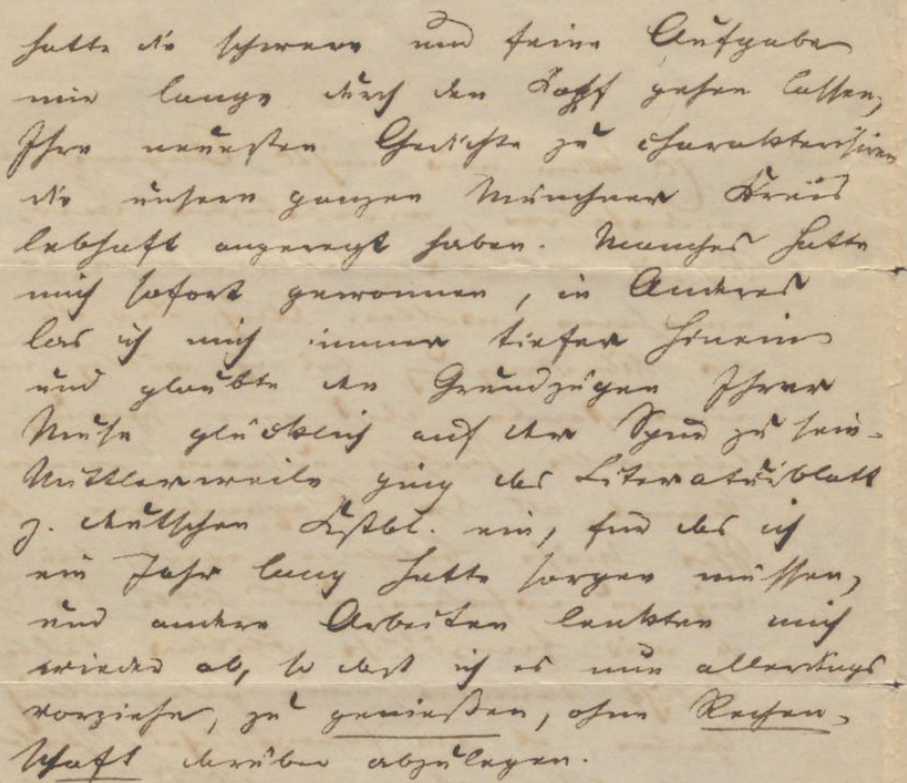 hatte die schwere und feine Aufgabe
mir lange durch den Kopf gehen lassen,
Ihre neuesten Gedichte zu charakterisiren
die unsern ganzen Münchner Kreis
lebhaft angeregt haben. Manches hatte
mich sofort gewonnen, in Anderes
las ich mich immer tiefer hinein
und glaubte den Grundzügen Ihrer
Muse glücklich auf der Spur zu sein.
Mittlerweile ging das Literaturblatt
z. deutschen Kstbl. ein, für das ich
ein Jahr lang hatte sorgen müssen,
und andere Arbeiten lenkten mich
wieder ab, so daß ich es nun allerdings
vorziehe, zu genießen, ohne Rechen-
schaft darüber abzulegen.